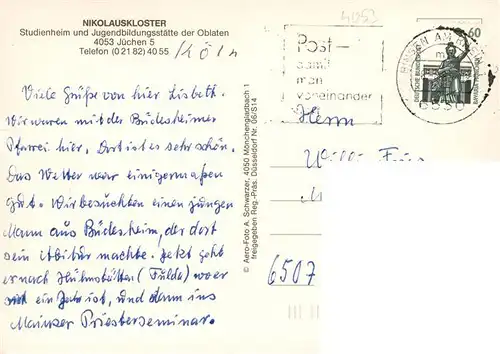 NIKOLAUSKLOSTER
Studienheim und Jugendbildungsstätte der Oblaten
4053 Jüchen 5
Telefon (0 21 82) 40 55
Köln
Viele Grüße von hier Lisbeth.
Wir waren mit der Büdesheimer
Pfarrei hier. Dort ist es sehr schön.
Das Wetter war einigermaßen
gut. Wir besuchten einen jungen
Mann aus Büdesheim, der dort
sein Abitur machte. Jetzt geht
er nach (Fulde) wo er
ein Jahr ist, und dann ins
Mainzer Priesterseminar.
© Aero-Foto A. Schwarzer, 4050 Mönchengladbach 1
freigegeben Reg.-Präs. Düsseldorf Nr. 06/S14
4053
Post-
damit
man
voneinander
60
DEUTSCHE BUNDESPOST
Herrn
6507